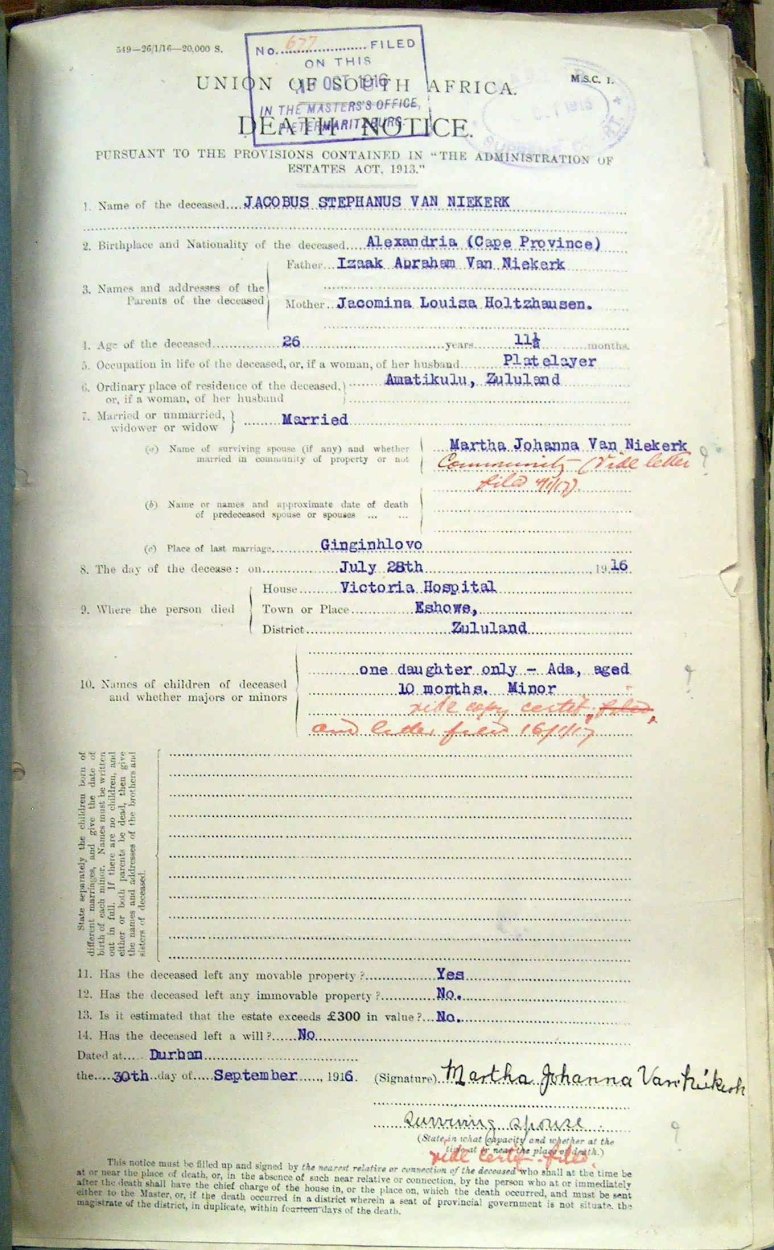 549—26/1/16—20,000 S.
No. 677 FILED
ON THIS
OCT 1916
IN THE MASTER'S OFFICE,
PIETERMARITZBURG.
M.S.C. 1.
UNION OF SOUTH AFRICA.
DEATH NOTICE.
PURSUANT TO THE PROVISIONS CONTAINED IN "THE ADMINISTRATION OF
ESTATES ACT, 1913."
1. Name of the deceased JACOBUS STEPHANUS VAN NIEKERK
2. Birthplace and Nationality of the deceased Alexandria (Cape Province)
3. Names and addresses of the Parents of the deceased
Father Izaak Abraham Van Niekerk
Mother Jacomina Louisa Holtzhausen.
4. Age of the deceased 26 years 11½ months.
5. Occupation in life of the deceased, or, if a woman, of her husband Platelayer
6. Ordinary place of residence of the deceased, or, if a woman, of her husband Amatikulu, Zululand
7. Married or unmarried, widower or widow Married
(a) Name of surviving spouse (if any) and whether married in community of property or not Martha Johanna Van Niekerk
Community (vide letter ?
filed
(b) Name or names and approximate date of death of predeceased spouse or spouses ... ...
(c) Place of last marriage Ginginhlovo
8. The day of the decease: on July 28th 1916
9. Where the person died
House Victoria Hospital
Town or Place Eshowe,
District Zululand
10. Names of children of deceased and whether majors or minors
one daughter only - Ada, aged ?
10 months. Minor
vide copy certif. filed,
and letter filed 16/1/17
State separately the children born of
different marriages, and give the date of
birth of each minor. Names must be written
out in full. If there are no children, and
either or both parents be dead, then give
the names and addresses of the brothers and
sisters of deceased.
11. Has the deceased left any movable property? Yes
12. Has the deceased left any immovable property? No.
13. Is it estimated that the estate exceeds £300 in value? No.
14. Has the deceased left a will? No
Dated at Durban
the 30th day of September, 1916. (Signature) Martha Johanna Van Niekerk
surviving spouse. ?
(State in what capacity and whether at the
time at or near the place of death.)
vide certif. filed.
This notice must be filled up and signed by the nearest relative or connection of the deceased who shall at the time be
at or near the place of death, or, in the absence of such near relative or connection, by the person who at or immediately
after the death shall have the chief charge of the house in, or the place on, which the death occurred, and must be sent
either to the Master, or, if the death occurred in a district wherein a seat of provincial government is not situate, the
magistrate of the district, in duplicate, within fourteen days of the death.